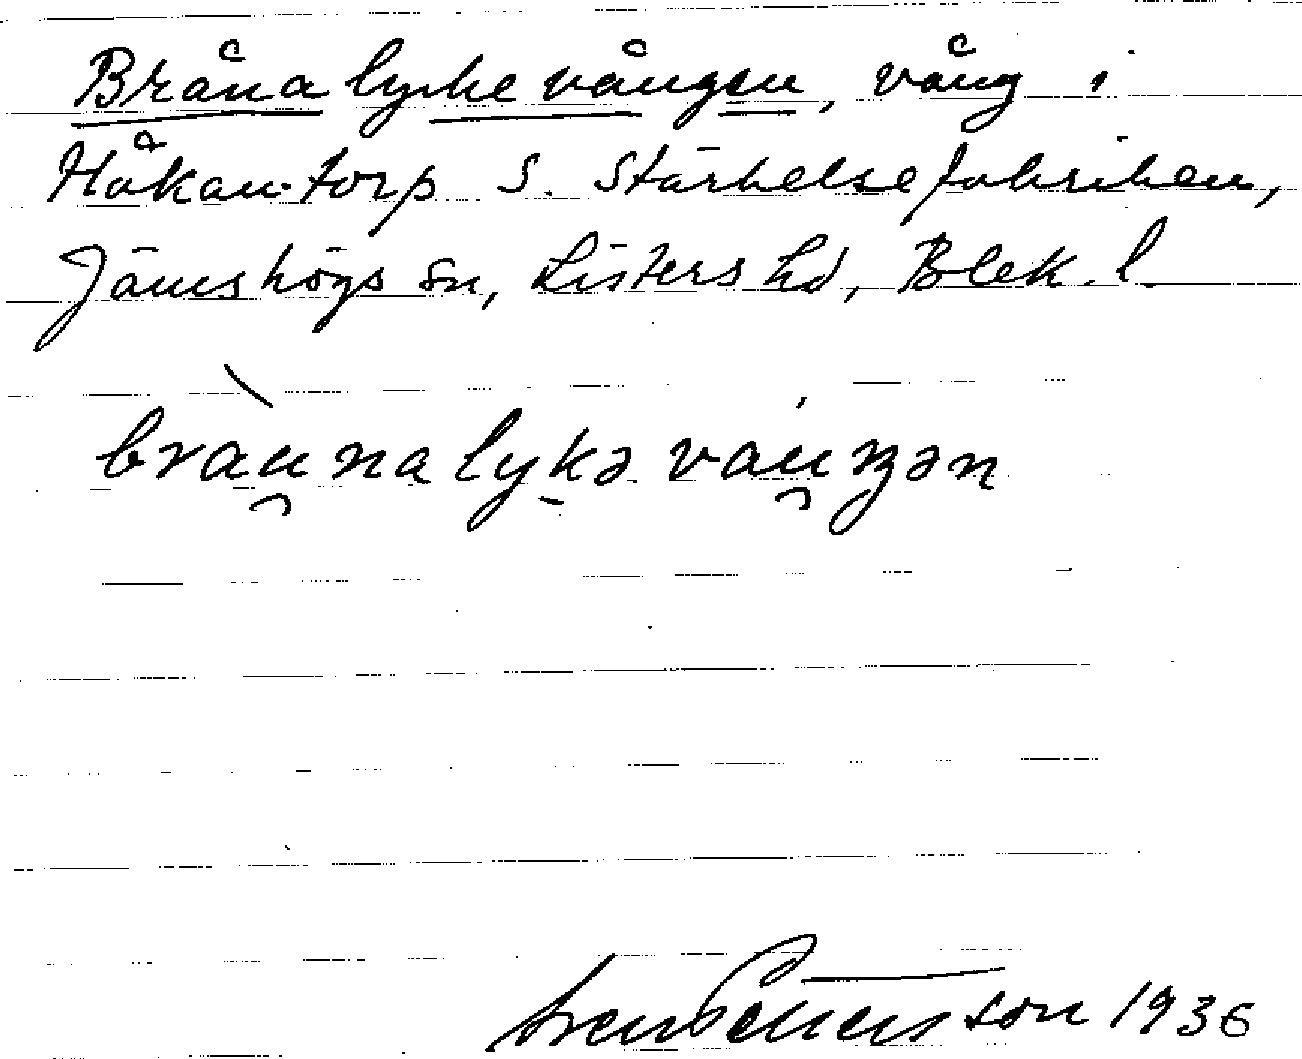 Bråna lycke vången, vång i
Håkantorp S. Stärkelsefabriken,
Jämshögs sn, Listers hd, Blek. l.
bràu̯na lykə váu̯ŋən
Sven Petterson 1936